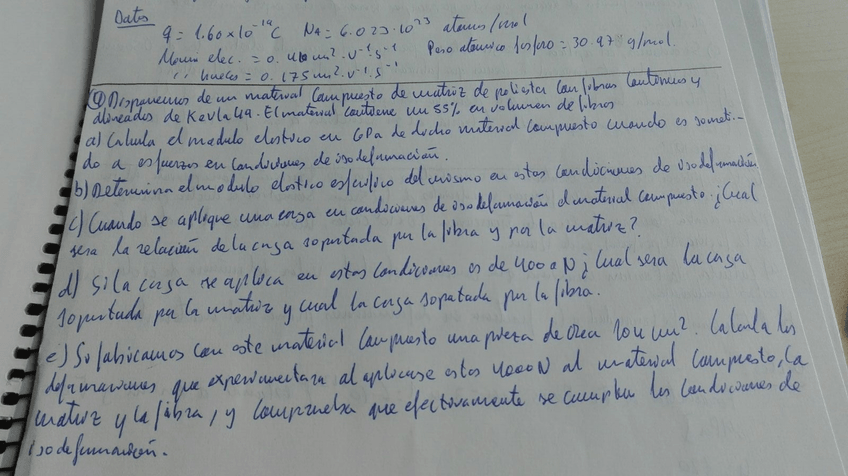 Datos
q = 1.60x10⁻¹⁹C   NA = 6.023·10²³ atomos/mol
Movi elec. = 0.40 m²·V⁻¹·s⁻¹   Peso atomico fosforo = 30.97 g/mol.
" huecos = 0.175 m²·V⁻¹·s⁻¹
④ Disponemos de un material compuesto de matriz de poliester con fibras continuas y
alineadas de Kevla 49. El material contiene un 55% en volumen de fibras
a) Calcula el modulo elastico en GPa de dicho material compuesto cuando es someti-
do a esfuerzos en condiciones de isodeformación.
b) Determina el modulo elastico especifico del mismo en estas condiciones de isodeformación
c) Cuando se aplique una carga en condiciones de isodeformación al material compuesto. ¿Cual
sera la relación de la carga soportada por la fibra y por la matriz?
d) Si la carga se aplica en estas condiciones es de 4000 N ¿Cual sera la carga
soportada por la matriz y cual la carga soportada por la fibra.
e) Si fabricamos con este material compuesto una pieza de area mm². Calcula las
deformaciones que experimentara al aplicarse estos 4000N al material compuesto, la
matriz y la fibra, y comprueba que efectivamente se cumplen las condiciones de
isodeformación.